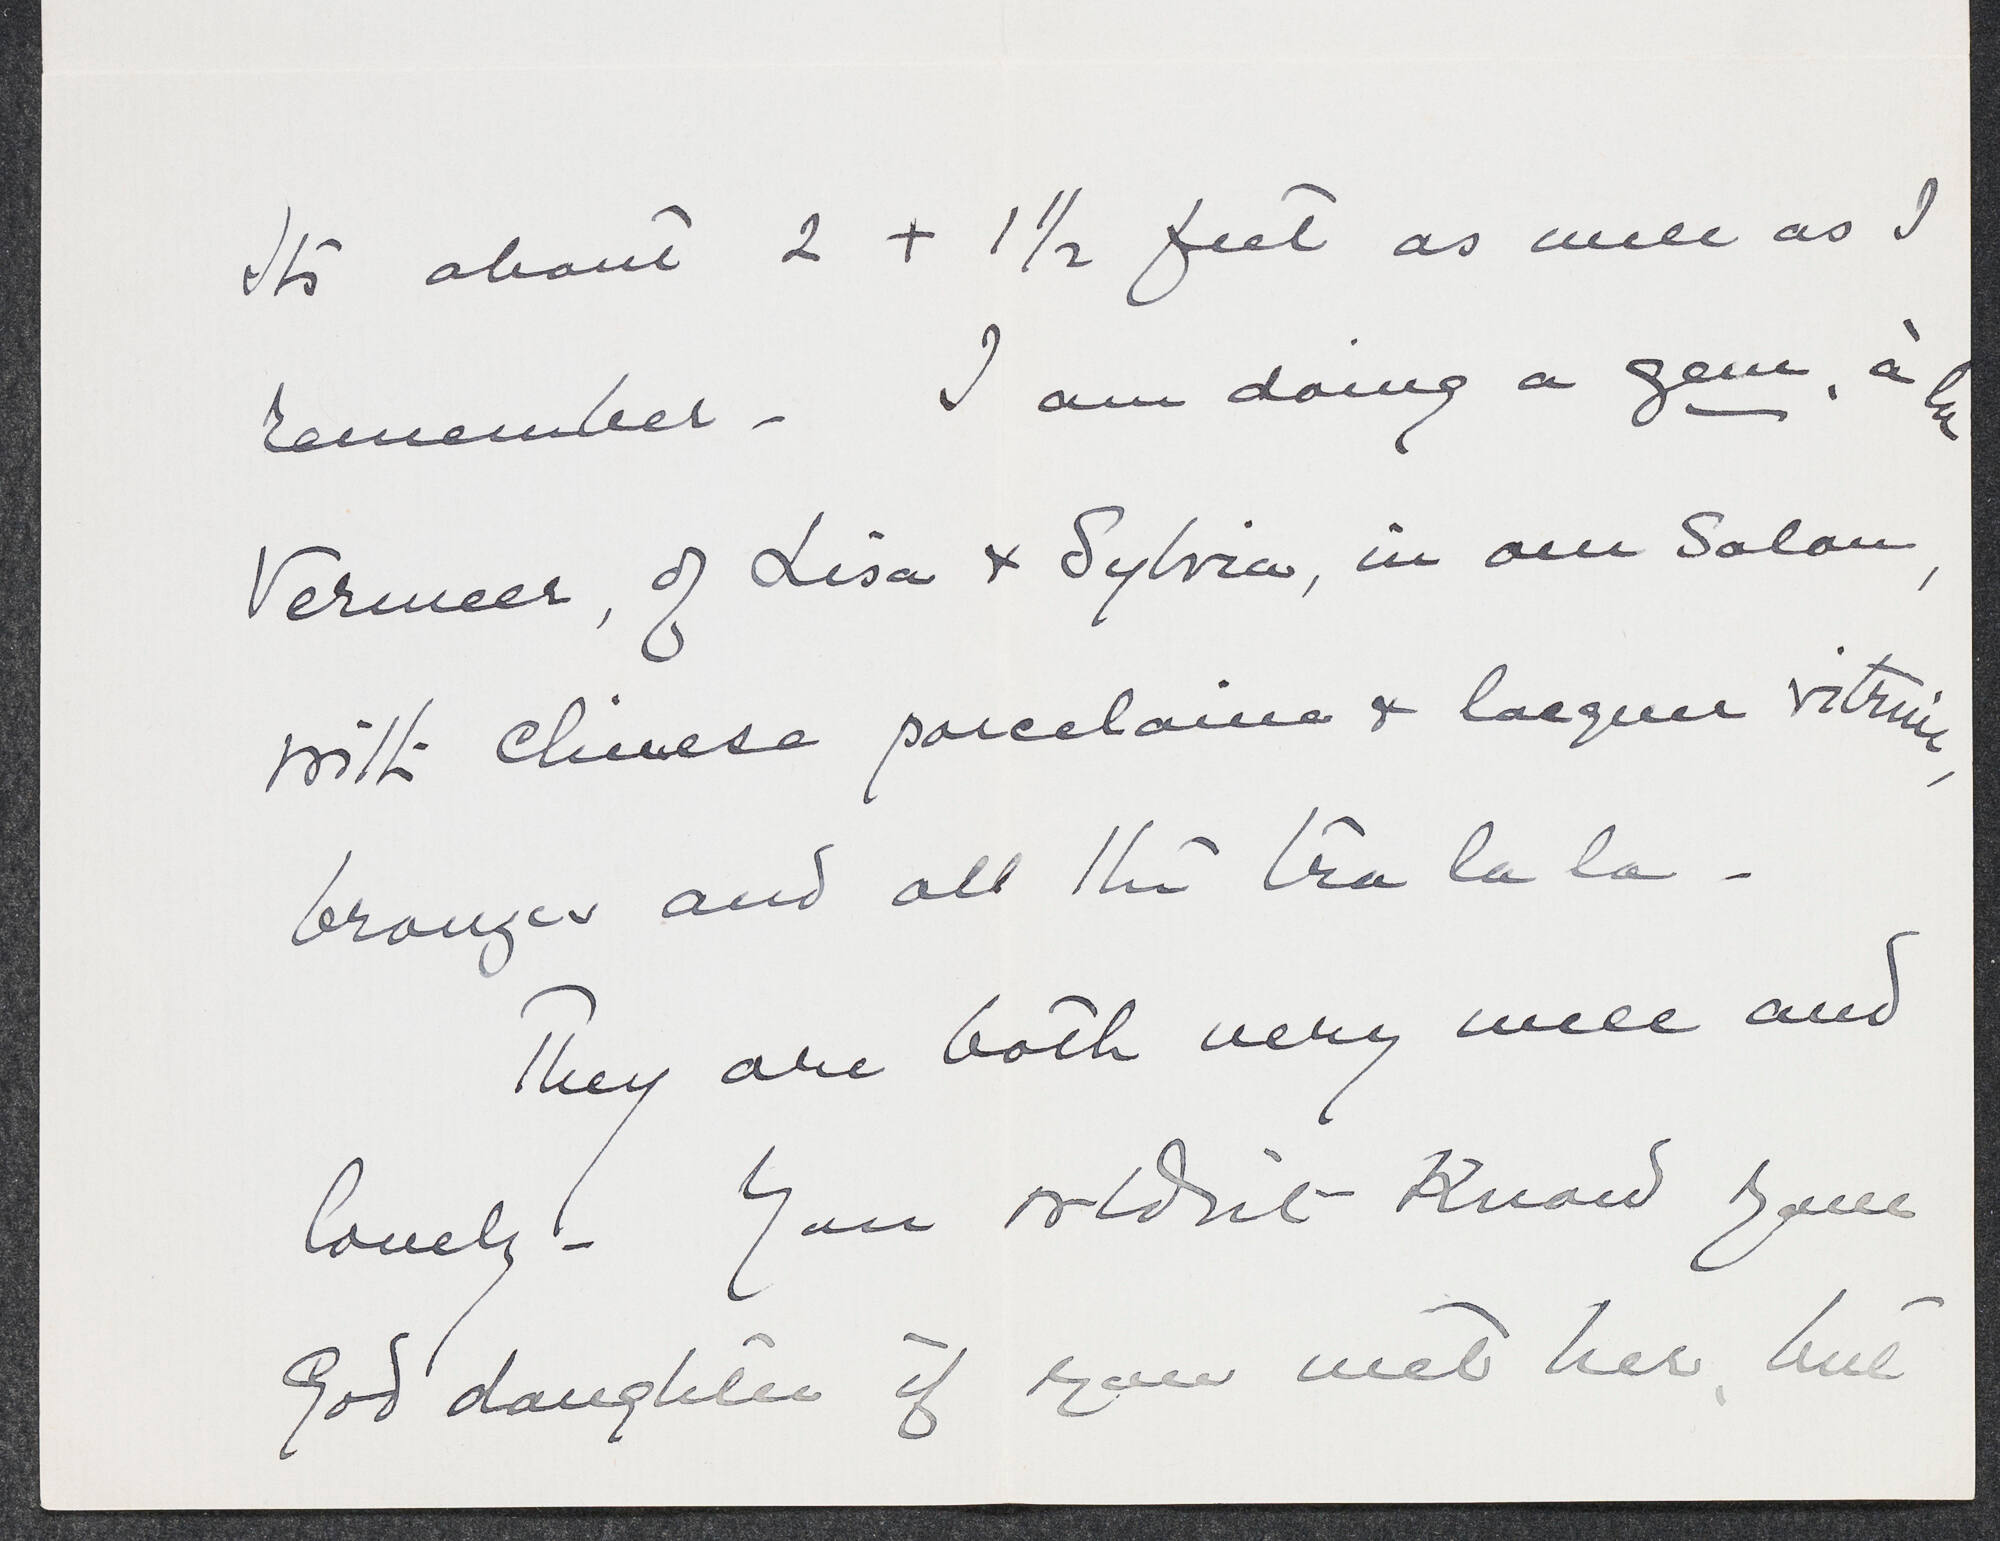 Its about 2 + 1 1/2 feet as well as I
remember – I am doing a gem, à la
Vermeer, of Lisa & Sylvia, in our Salon,
with Chinese porcelaine & lacquer vitrine,
bronzes and all the tra la la –
They are both very well and
lovely – You wldnt know your
God daughter if you met her, but